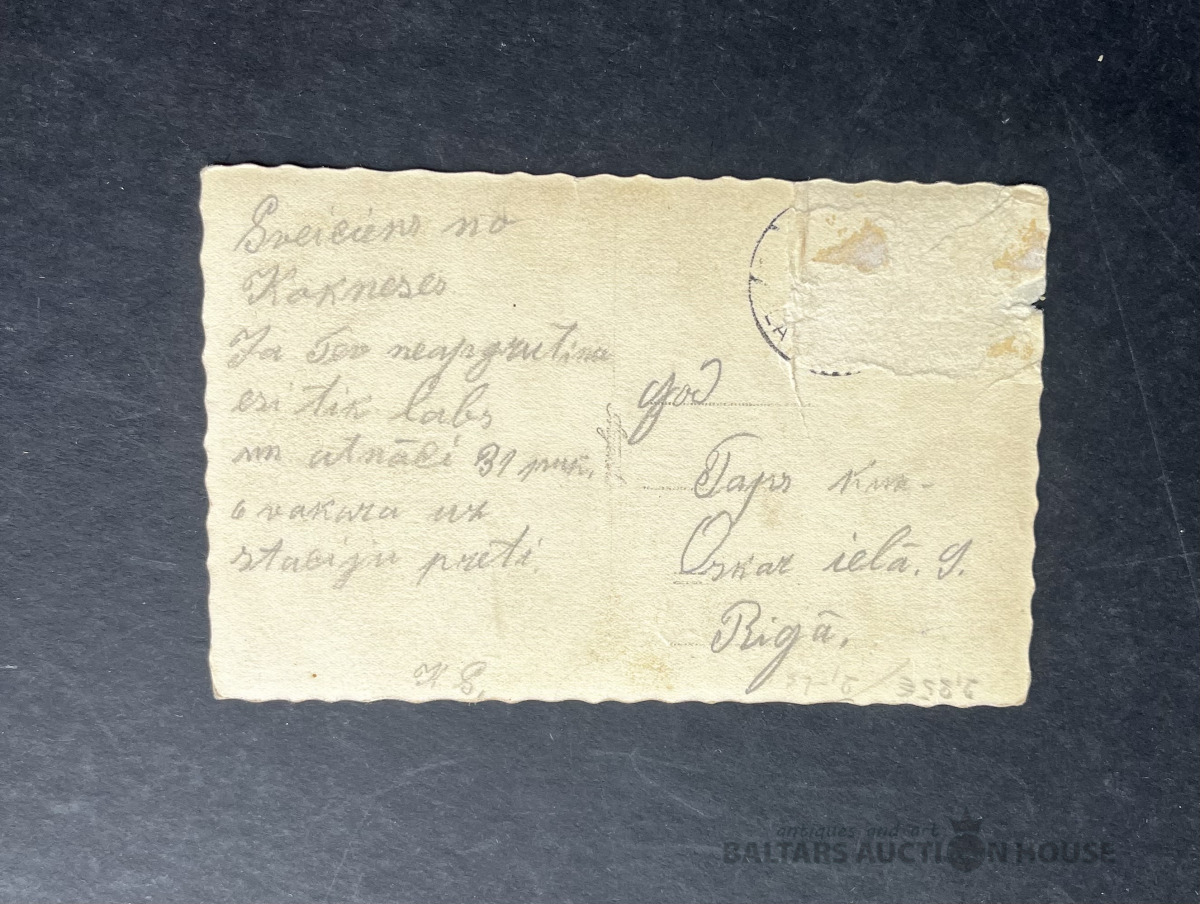 Sveiciens no
Kokneses
Ja Tev neapgrutina
esi tik labs
un atnāci 31 puk.
6 vakara uz
staciju preti.
K S.
LA
god
Oskar ielā. 9.
Rigā.
antiques and art
BALTARS AUCTION HOUSE